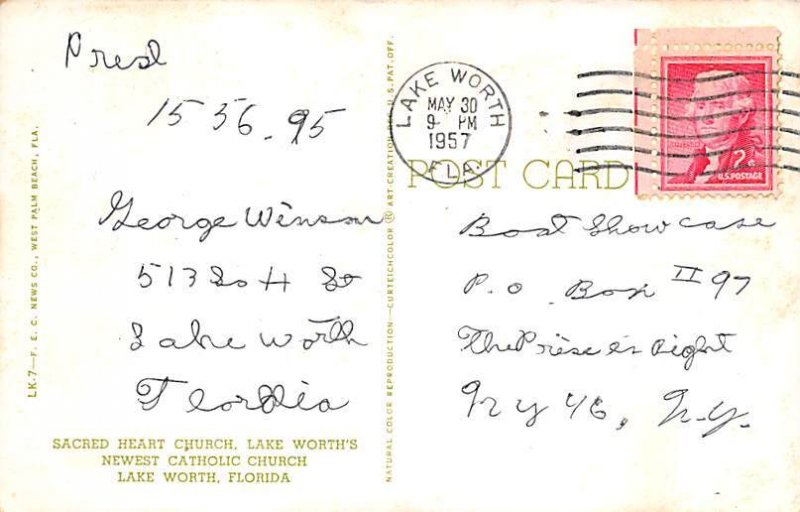 Presd
1556.95
George Winsor
513 So H St
Lake Worth
Flordia
SACRED HEART CHURCH, LAKE WORTH'S
NEWEST CATHOLIC CHURCH
LAKE WORTH, FLORIDA
LK-7—F. E. C. NEWS CO., WEST PALM BEACH, FLA.
NATURAL COLOR REPRODUCTION—CURTEICHCOLOR ® ART CREATION REG. U.S. PAT. OFF.
POST CARD
LAKE WORTH
MAY 30
9- PM
1957
FLA.
2¢
U.S. POSTAGE
Boat Show case
P.O. Box II 97
The Prise is Right
N Y 46, N.Y.